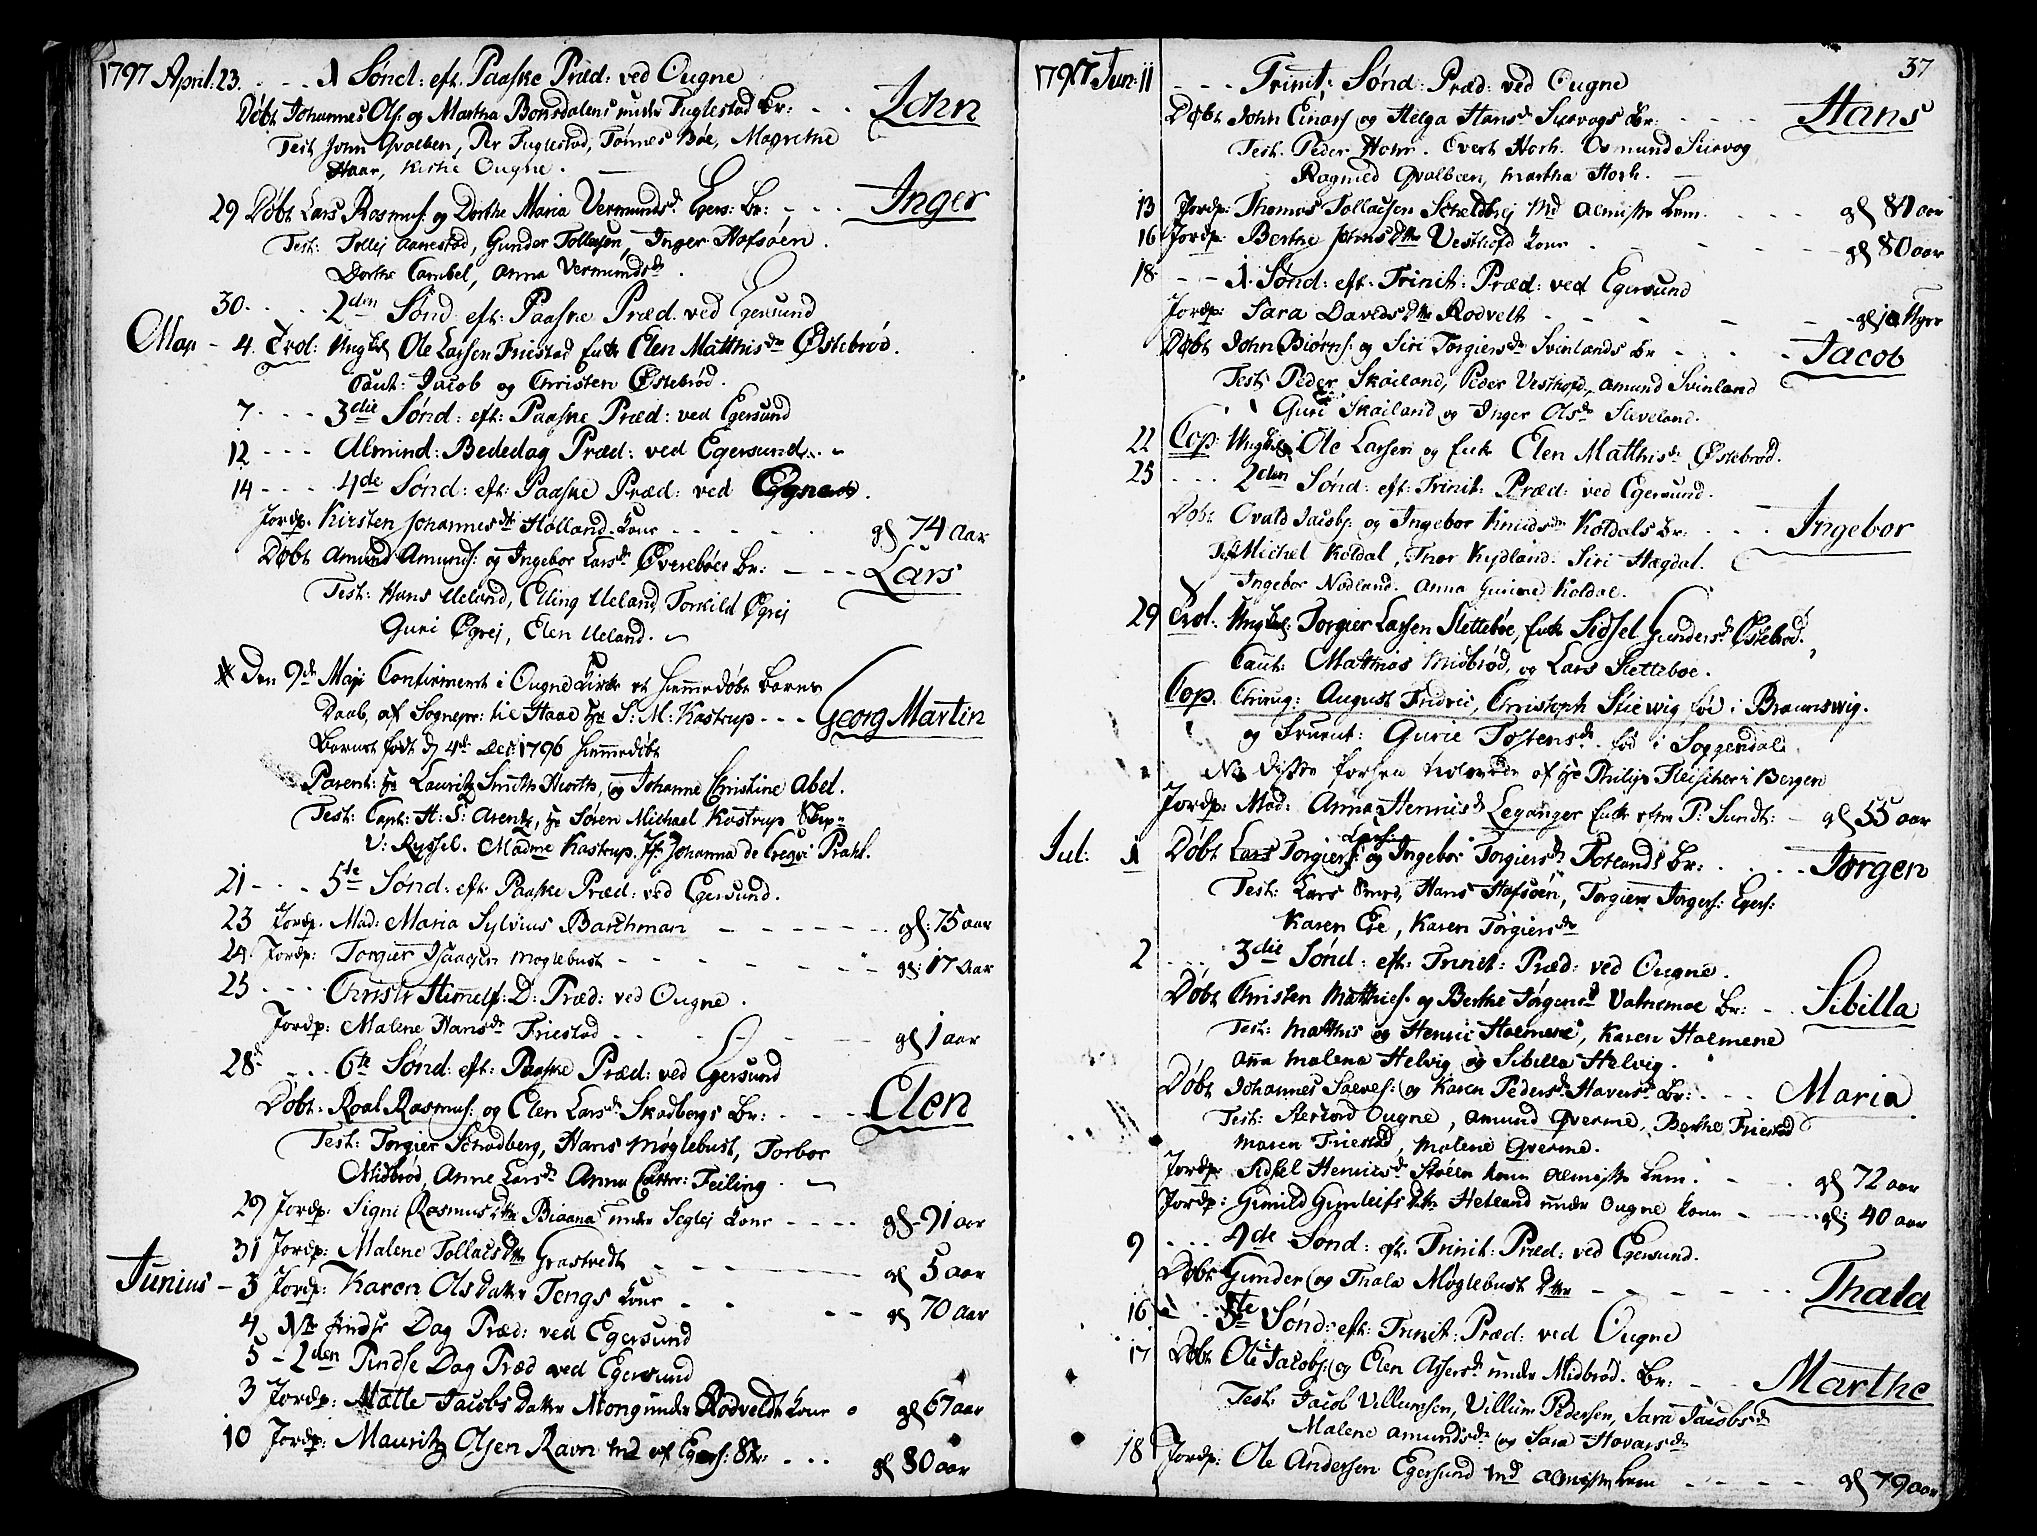 1797 April: 23. - - - 1 Sønd: eft: Paaske Præd: ved Ougne
Døbt Johannes Ols: og Martha Bonsdalens under Fuglestad Br: - - John
Test John Qvalben, Per Fuglestad, Tønnes Bøe, Magrethe
Haar, Kirstie Ougne.
29 Døbt Lars Rasmus: og Dorthe Maria Vermunds Dr Egers: Br: - - - Inger
Test: Tollej Aanestad, Gunder Tollefsen, Inger Hafsøen.
Dorthe Cambel, Anna Vermunds dr.
30. - - - 2den Sønd: eft: Paaske Præd: ved Egersund
Maji - 4. Trol: Ungkel Ole Larsen Friestad Enke Elen Matthis dr Østebrød.
Caut: Jacob og Christen Østebrød.
7 - - - 3die Sønd: eft: Paaske Præd: ved Egersund
12 - - - Almind: Bededag Præd: ved Egersund.
14 - - - 4de Sønd: eft: Paaske Præd: ved
Jordp: Kirsten Johannes dr Hølland Kone - - - gl 74 aar
Døbt Amund Amunds: og Ingebor Lars dr Øverebøes Br: - - - Lars
Test: Hans Ueland, Elling Ueland, Torkild Øgrej
Guri Øgrej, Elen Ueland.
Den 9de Maji Confirmeret i Ougne Kirke et hjemmedøbt Barns
Daab, af Sognepr: til Haae Hr S: M: Kastrup - - - Georg Martin
Barnet født d 4de Dec: 1796 hjemmedøbt
Parent: Hr Lauritz Smith Hiorth, og Johanne Christine Abel.
Test: Capt: H: S: Arentz, Hr Søren Michael Kastrup
V: Russel. Madme Kastrup, Jfr Johanna de Crequi Prahl.
21 - - - 5te Sønd: eft: Paaske Præd: ved Egersund.
23 Jordp: Mad: Maria Sylvius Barthman - - - gl: 75 aar
24. Jordp: Torgier Isaacsen Møglebust - - - gl: 17 aar
25 - - - Christi Himmelf: D: Præd: ved Ougne.
Jordp: Malene Hans dr Friestad - - - gl 1 aar
28. - - - 6te Sønd: eft: Paaske Præd: ved Egersund
Døbt: Roal Rasmus: og Elen Lars dr Skadbergs Br: - - - Elen
Test: Torgier Schadberg, Hans Møglebust, Torbor
Midbrød, Anne Lars dr Anna Cathr: Feiling.
29 Jordp: Signi Rasmus Dtr Biaana under Seglej Kone - - - gl - 91 aar
31 Jordp: Malene Tollacs Dtr Grastvedt - - - gl 5 aar
Junius - 3 Jordp: Karen Ols Datter Tengs Kone - - - gl 70 aar
4 1te Pindse Dag Præd: ved Egersund
5 - 2den Pindse Dag Præd ved Egersund
3 Jordp: Mætte Jacobs Datter Mong under Rødveldt Kone gl 67 aar
10 Jordp: Mauritz Olsen Ravn Md af Egers: - - - gl 80 aar
37
1797 Jun: 11 - - - Trinit: Sønd: Præd: ved Ougne
Døbt John Einars og Helga Hans dr Sirevogs Br: - - - Hans
Test. Peder Hohr. Evert Horh. Osmund Sirevog
Ragnild Qvalbeen, Martha Horh.
13 Jordp: Thomas Tollacsen Scheldbrej Md Almisse Lem. - - - gl 81 aar
16 Jordp: Berthe Johns Dtr Vesthofd Kone - - - gl 80 aar
18. - - 1. Sønd: eft: Trinit: Præd: ved Egersund
Jordp: Sara Davids Dtr Rodvelt - - -
Døbt John Biørns: og Siri Torgiers dr Svinlands Br - - - Jacob
Test: Peder Skailand, Peder Vesthofd, Amund Svinland
Guri Skailand og Inger Ols dr Sleveland.
22 Cop: Ungkel Ole Larsen og Enke Elen Matthis dr Østebrød.
25 - - - 2den Sønd: eft: Trinit: Præd: ved Egersund.
Døbt Ovald Jacobs: og Ingebor Knuds dr Koldals Br: - - - Ingebor
Test Michel Koldal, Thor Kydland. Siri Hægdal.
Ingebor Nodland. Anna Gurine Koldal.
29 Trol: Ungkel: Torgier Larsen Slettebøe, Enke Sidsel Gunders dr Østebrød.
Caut: Matthias Midbrød, og Lars Slettebøe.
Cop. Chirug: August Fridric, Christoph Stiewig fød i Braunswig.
og Fruent: Gurie Tostens dr fød i Soggendal.
Nb Disse Persen af Hr Philip Fleischer i Bergen
Jordp: Mad: Anna Hennis dr Leganger Enke efter P: Sundt: - gl 55 aar
Jul: 1 Døbt Lars Torgiers: Larsis og Ingebor Torgiers dr Rotlands Br: - - - Jorgen
Test: Lars Smed, Hans Hafsøen, Torgier Jorgers: Egers:
Karen Eie, Karen Torgiers dr
2 - - - 3die Sønd: eft: Trinit: Præd: ved Ougne.
Døbt Christen Matthies: og Berthe Jørgens dr Vatnemoe Br: - Sibilla
Test: Matthis og Henric Holmene, Karen Holmene
Anna Malena Helvig og Sibilla Helvig.
Døbt Johannes Salves: og Karen Peders dr Havers Br: - - - Maria
Test: Ougne, Amund Qverme, Berthe Friestad
Maren Friestad, Malene Qverme.
Jordp: Sidsel Henrics dr Stølen Kone Almisse Lem. - - - gl 72 aar
Jordp: Gunild Gunleifs Dtr Hetland under Ougne Kone - - - gl: 40 aar
9 - - - 4de Sønd: eft. Trinit: Præd: ved Egersund.
Døbt Gunder og Thala Møglebust Dtr - - - Thala
16 - - 5te Sønd: eft: Trinit: Præd: ved Ougne
17 Døbt Ole Jacobs: og Elen Assers dr under Midbrød. Br: - - Marthe
Test: Jacob Villumsen, Villum Pedersen, Sara Jacobs dr
Malene Amunds dr og Sara Hovars dr
18 Jordp: Ole Andersen Egersund Md Almisse Lem - - - gl 79 aar